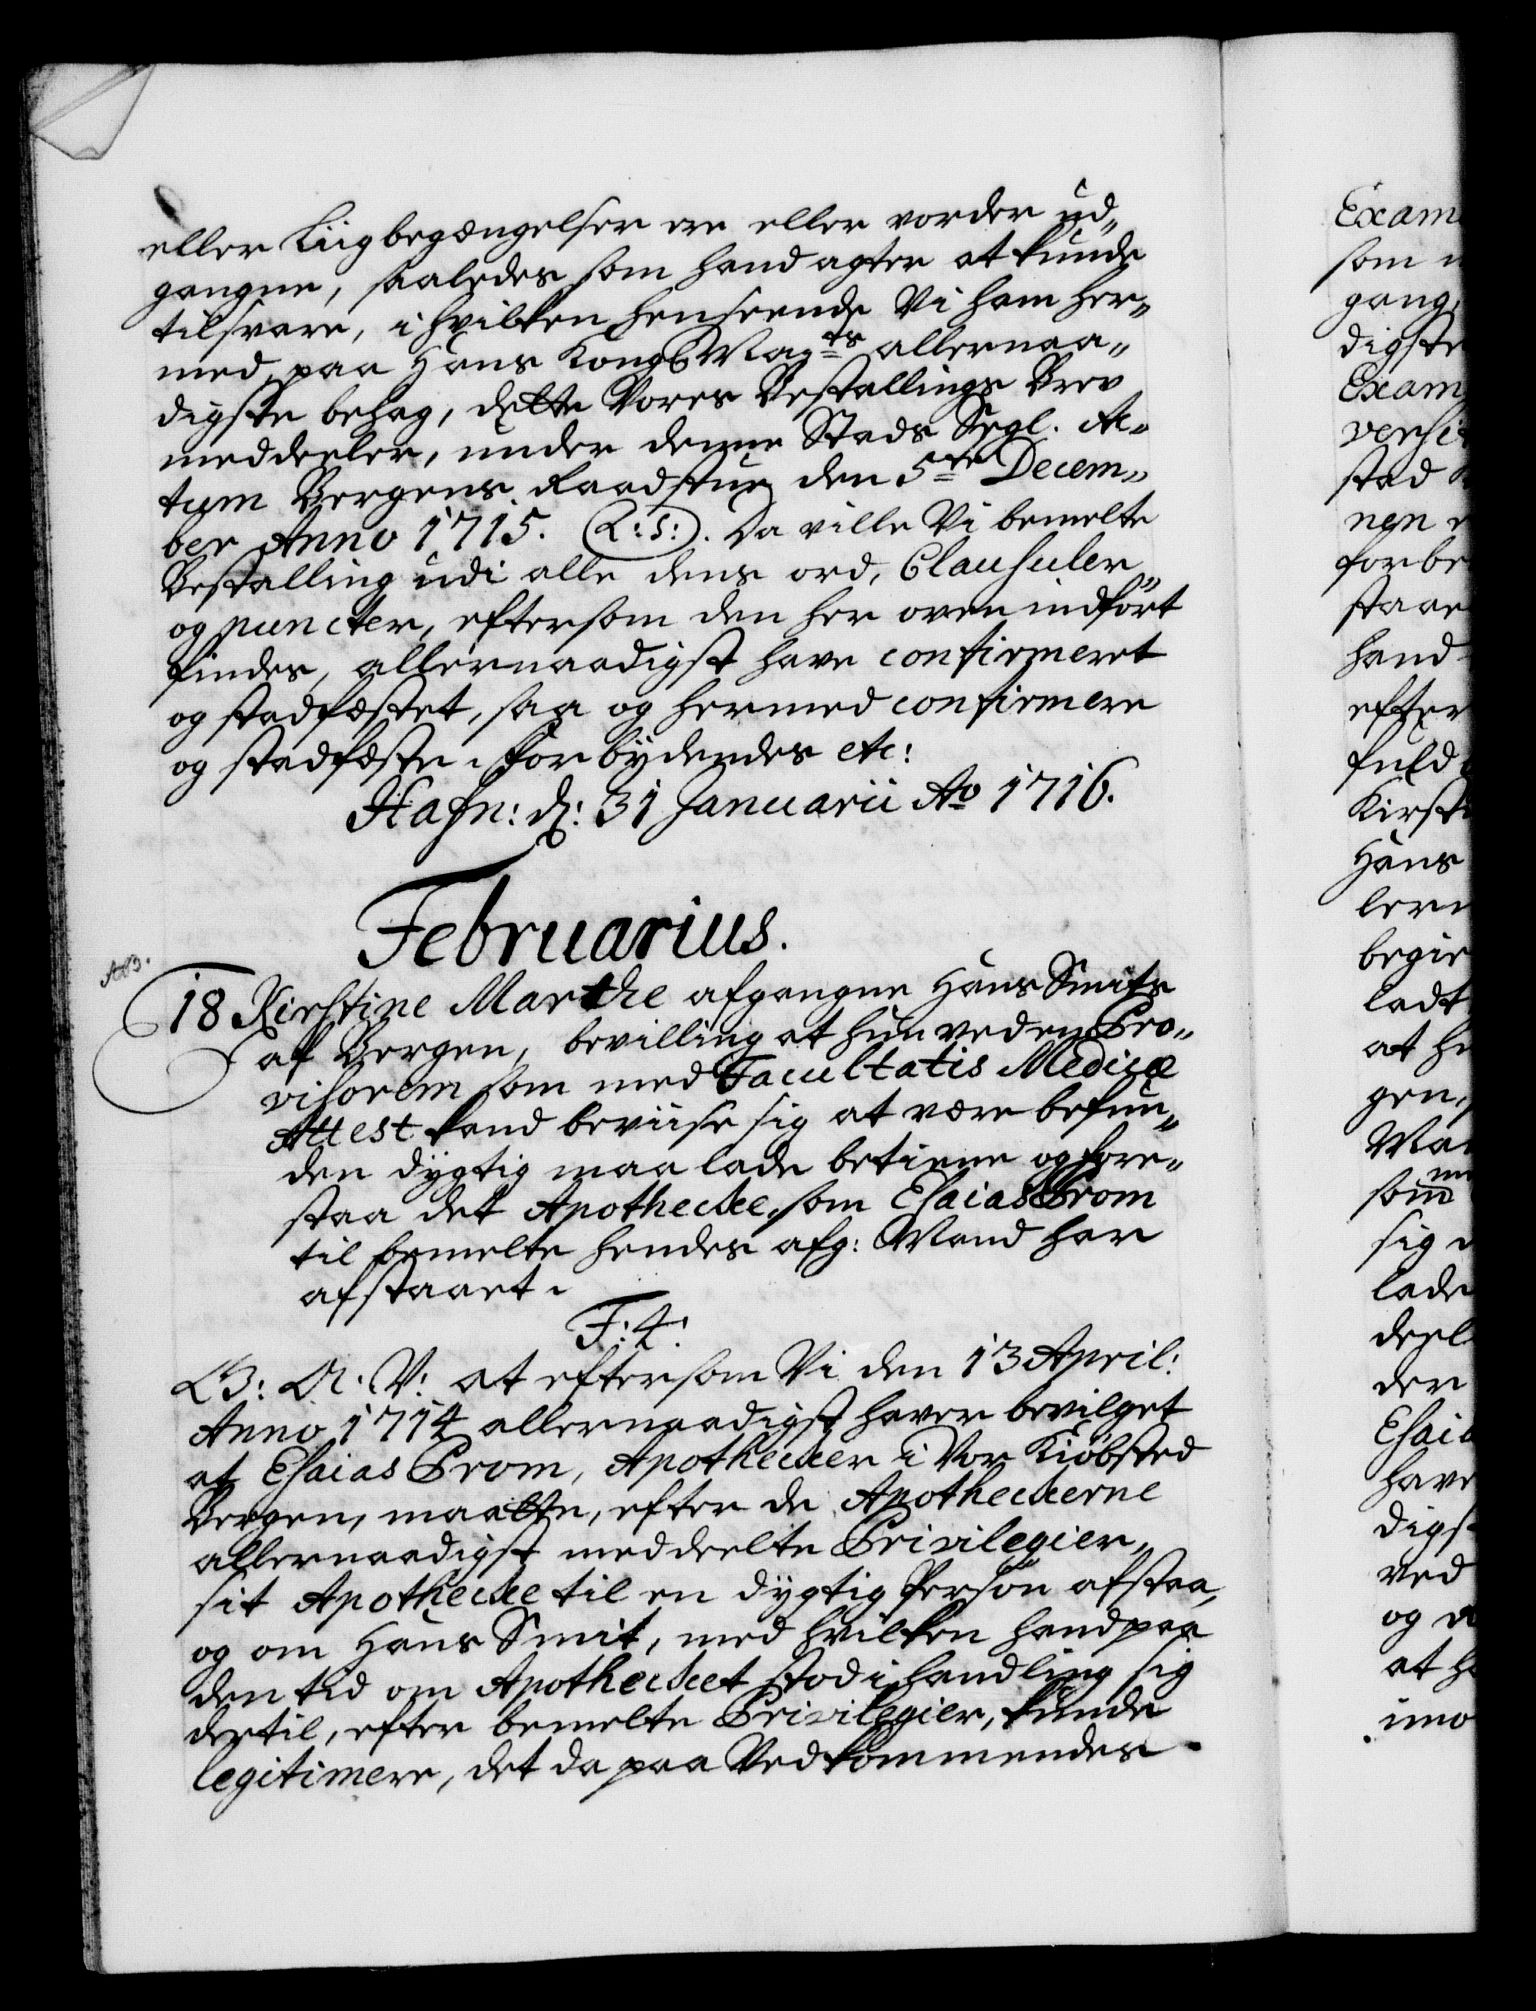 eller Liigbegængelser ere eller vorder ud-
gangne, saaledes som hand agter at kunde
tilsvare, i hvilken henseende Vi ham her-
med, paa Hans Kongl Mayts allernaa-
digste behag, dette Vores Bestallings Brev
meddeeler, under denne Stads Segl. Ac-
tum Bergens Raadstue den 5te Decem-
ber Anno 1715. (L:S:). Da ville Vi bemelte
Bestalling udi alle dens ord, Clausuler,
og puncter, eftersom den her oven indført
findes, allernaadigst have confirmeret
og stadfæstet, saa og hermed confirmere
og stadfæste. Forbydendes etc:
Hafn: d: 31 Januarii Ao 1716.
Februarius.
NB.
18 Kirstine Marthe afgangne Hans Smits
af Bergen, bevilling at hun ved en Pro-
visorem som med Facultatis Medicæ
Attest kand beviise sig at være befun-
den dygtig maa lade betiene og fore-
staa det Apothecke, som Esaias Prom
til bemelte hendes afg: Mand har
afstaaet.
F: 4:
G: A: V: at eftersom Vi den 13 April:
Anno 1714 allernaadigst haver bevilget
at Esaias Prom, Apothecker i Vor Kiøbsted
Bergen, maatte, efter de Apotheckerne
allernaadigst meddeelte Privilegier,
sit Apothecke til en dygtig Person afstaa,
og om Hans Smit, med hvilken hand paa
den tid om Apothecket stod i handling sig
dertil, efter bemelte Privilegier, kunde
legitimere, det da paa Vedkommendes
Exam
som
gang
digste
Exam
versi
stad
nen
forbe
staae
hand
efter
fuld
Kirsti
Hans
lern
begie
ladt
at h
gen,
Ma
som
sig
lade
deel
der
Esaia
have
digst
ved
og
at h
imo